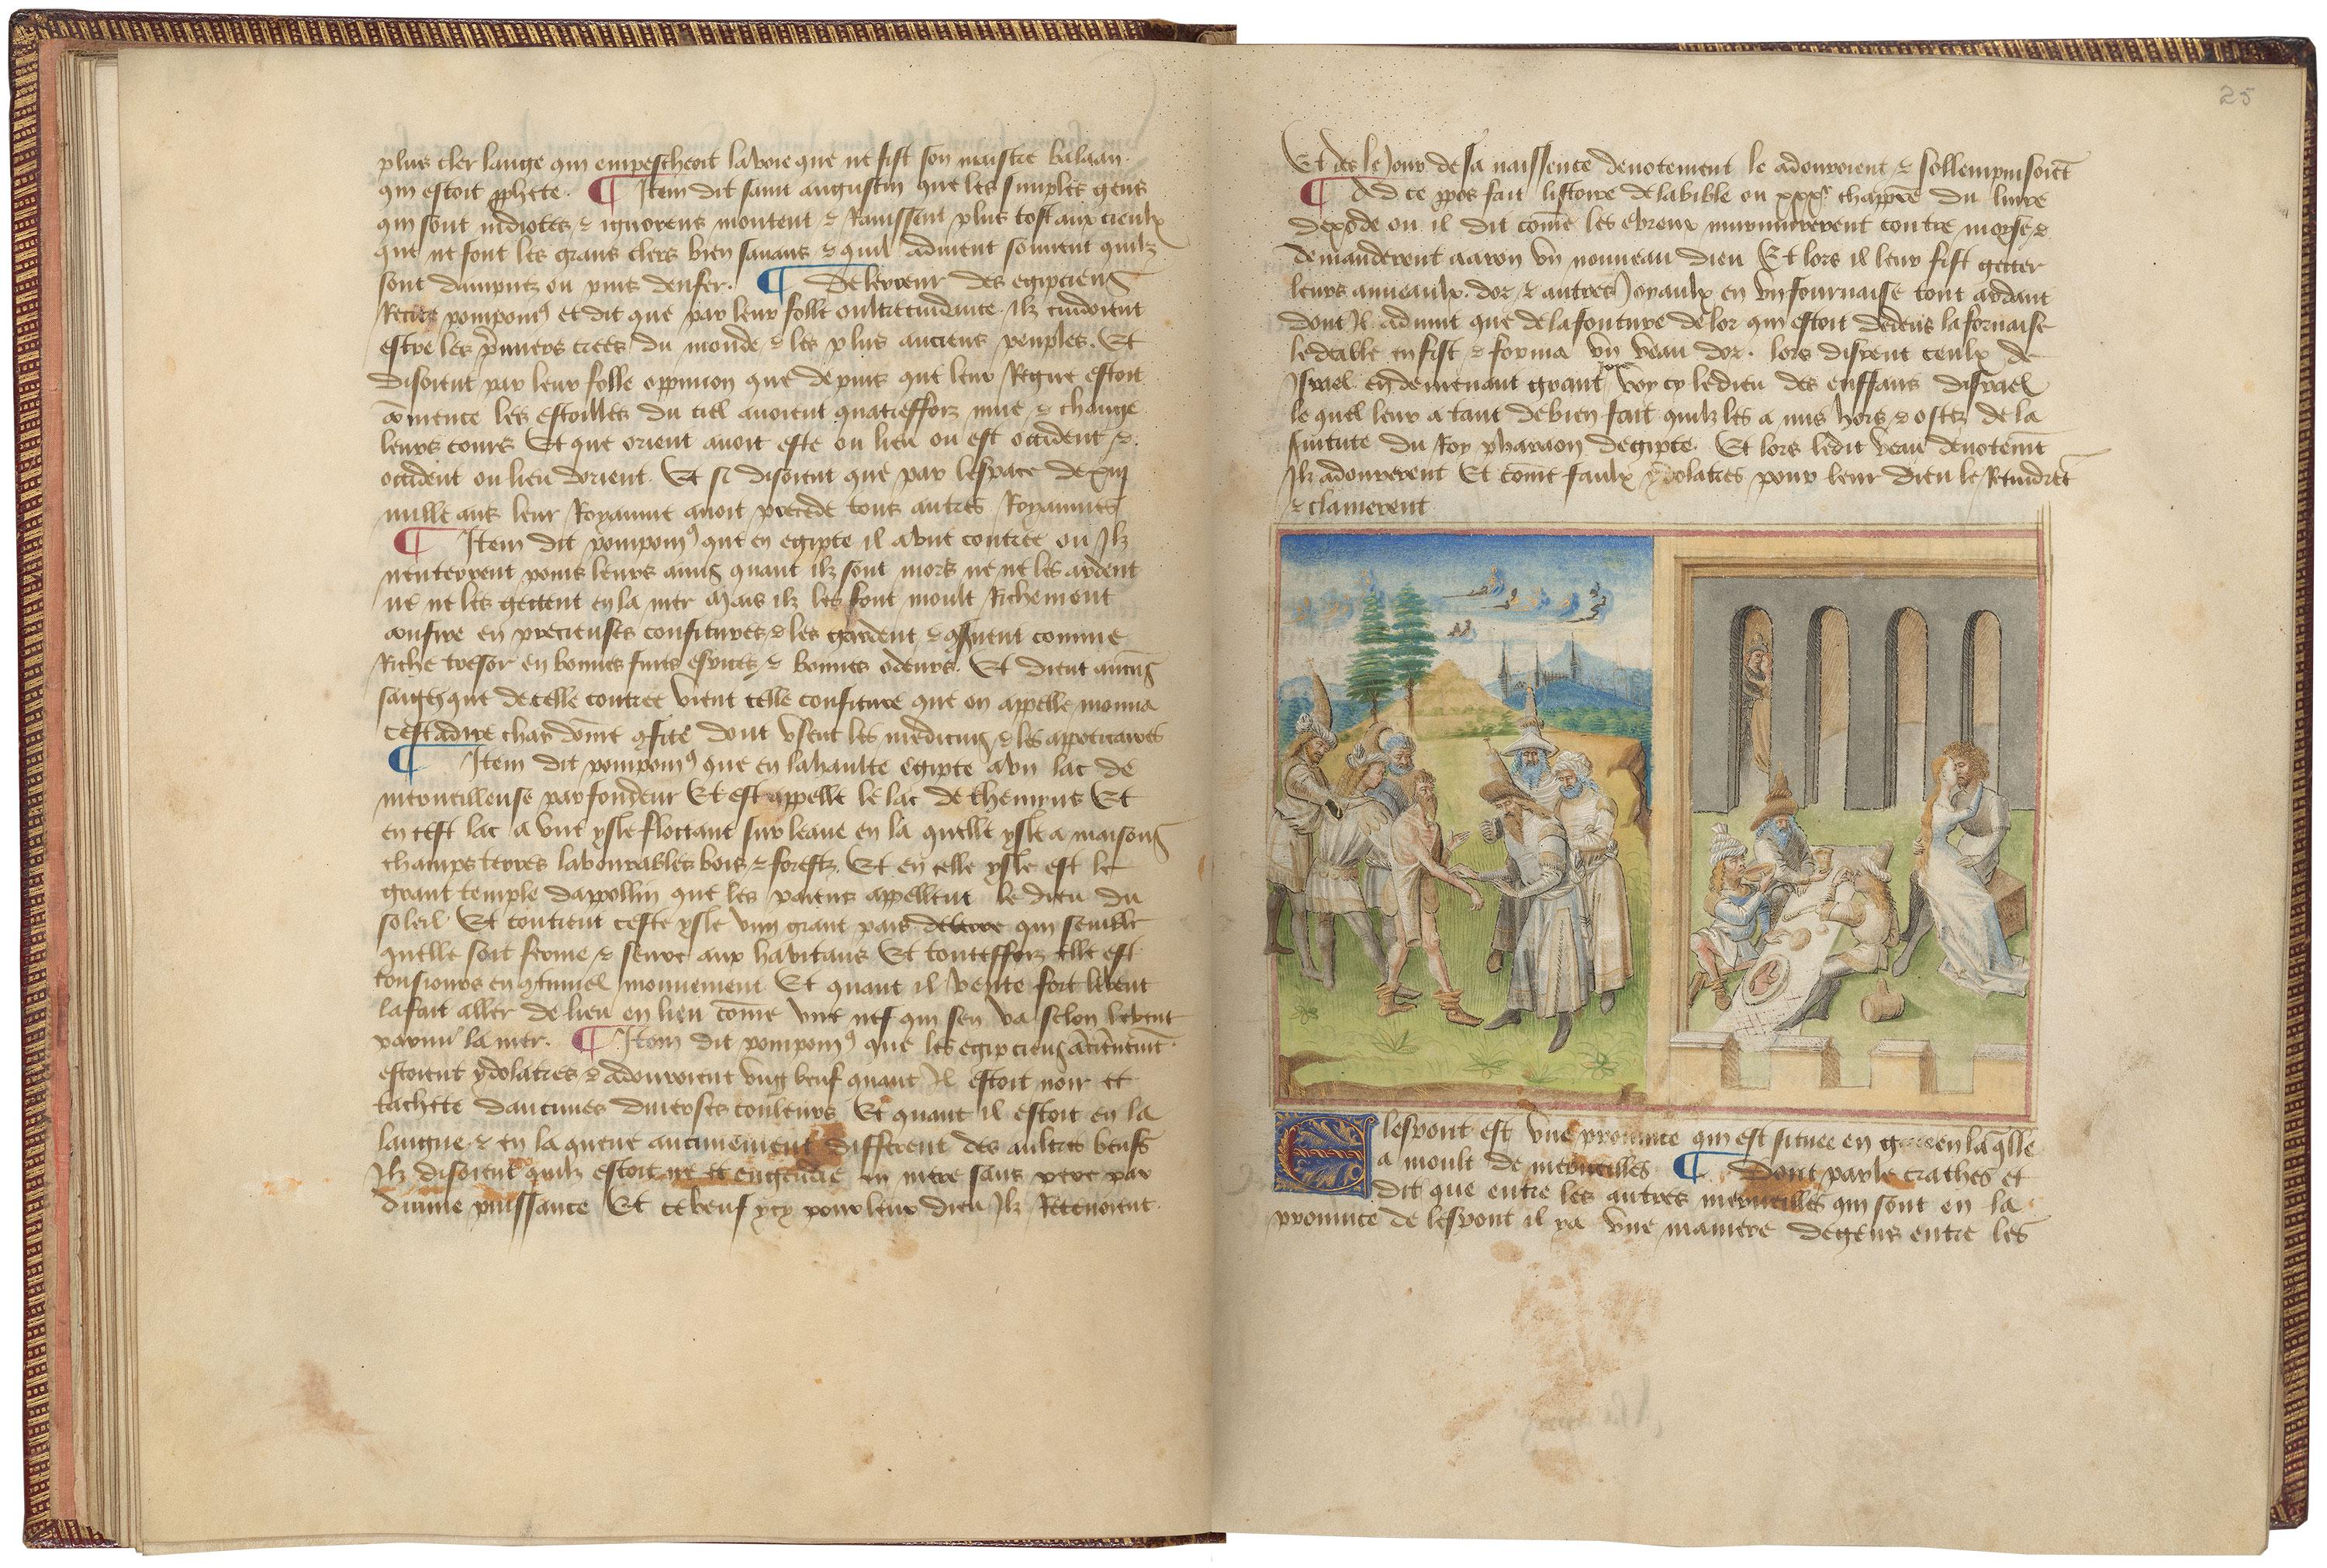 plus cler lange qui empeschoit la voie que ne fist son maistre balaan
qui estoit pphete. ¶ Item dit saint augustin que les simples gens
qui sont ydiotes & ignorens montent & Ravissent plus tost aux cieulx
que ne font les grans clers bien savans & quil advient souvent quilz
sont dampnez ou puis denfer. ¶ De lerreur des egipciens
Recite pomponius et dit que par leur folle oultrecuidance Ilz cuidoient
estre les premiers creez du monde & les plus anciens peuples. Et
disoient par leur folle oppinion que depuis que leur Regne estoit
comence les estoilles du ciel avoient quatreffoiz mue & change
leurs cours Et que orient avoit este ou lieu ou est occident &
occident ou lieu dorient. Et si disoient que par lespace de xiij
mille ans leur Royaume avoit precede tous autres Royaumes
¶ Item dit pomponius que en egipte il a une contree ou Ilz
nenterrent point leurs amis quant ilz sont mors ne ne les ardent
ne ne les gectent en la mer Mais ilz les font moult Richement
confire en precieuses confitures & les gardent & comme
Riche tresor en bonnes espices & bonnes odeurs. Et dient aucuns
saiges que de celle contree vient celle confiture que on appelle momia
cest adire char domme cfite dont usent les medicins & les appoticaires
¶ Item dit pomponius que en la haulte egipte a un lac de
merveilleuse parfondeur Et est appelle le lac de themyus Et
en cest lac a une ysle floctant sur leaue en la quelle ysle a maisons
champs terres labourables bois & forestz. Et en celle ysle est le
grant temple dappollin que les paiens appellent le dieu du
soleil Et contient ceste ysle ung grant pais de terre qui semble
quelle soit ferme & seure aux habitans Et touteffoiz elle est
tousiours en continuel mouvement Et quant il vente fort le vent
la fait aller de lieu en lieu come une nef qui sen va selon le vent
parmi la mer. ¶ Item dit pomponius que les egipciens anciennement
estoient ydolatres & adouroient ung beuf quant Il estoit noir et
tachete daucunes diverses couleurs Et quant il estoit en la
langue & en la queue aucunement different des aultres beufs
Ilz disoient quilz estoit ne et engendre en mere sans pere par
divine puissance Et ce beuf ycy pour leur dieu Ilz Retenoient.
25
Et des le Jour de sa naissence devotement le adouroient & sollempnisoient
¶ Ad ce ppos fait listoire de la bible ou xxxe chappitre du livre
dexode ou il dit come les ebreux murmurerent contre moyse &
demanderent aaron un nouveau dieu Et lors il leur fist gecter
leurs anneaulx dor & autres Joyaulx en un fournaise tout ardant
dont Il advint que de la fonture de lor qui estoit dedens la fornaise
le deable en fist & forma un veau dor. lors disrent ceulx de
Israel en demenant grant joye voy cy le dieu des enffans disrael
le quel leur a tant de bien fait quilz les a mis hors & ostez de la
servitute du Roy pharaon degipte. Et lors ledit veau devotemt
Ilz adourerent Et come faulx ydolatres pour leur dieu le Retindret
& clamerent
Elespont est une province qui est situee en grece en la qlle
a moult de merveilles ¶ Dont parle crathes et
dit que entre les autres merveilles qui sont en la
province de lespont il ya une maniere de gens entre les